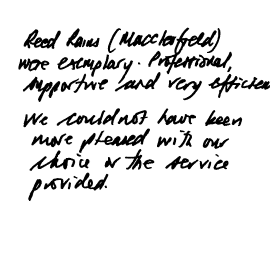 Reed Rains (Macclesfield)
were exemplary. Professional,
supportive and very efficient
We could not have been
more pleased with our
choice or the service
provided.